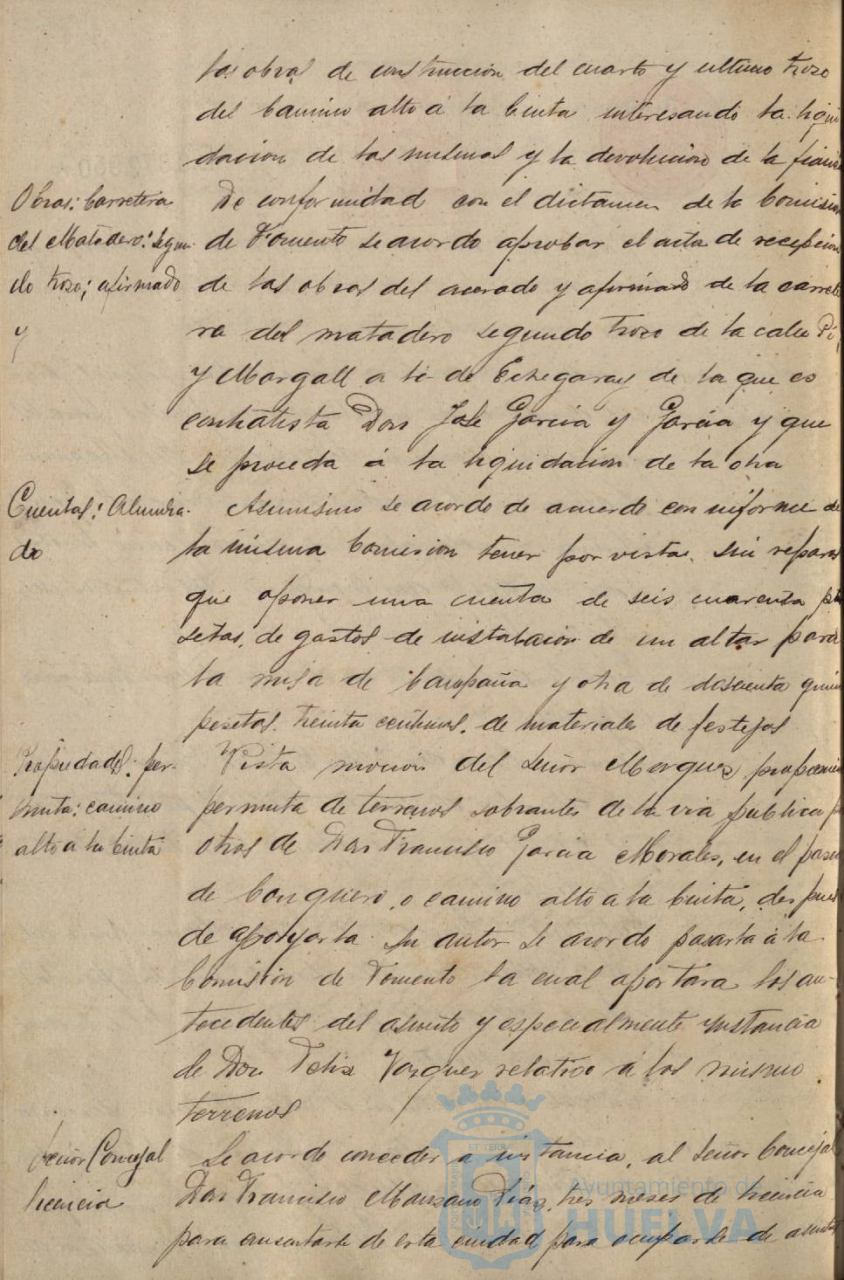 las obras de construccion del cuarto y ultimo trozo
del Camino alto á la Cinta interesando la liqui
dacion de las mismas y la devolucion de la fianza
Obras: Carretera
del Matadero: segun-
do trozo; afirmado
y
De conformidad con el dictamen de la Comision
de Fomento se acordo aprobar el acta de recepcion
de las obras del acerado y afirmado de la carrete
ra del matadero segundo trozo de la calle Pi,
y Margall a la de Echegaray de la que es
contratista Don José Garcia y Garcia y que
se proceda á la liquidacion de la obra
Cuentas: Alumbra-
do
Asimismo se acordo de acuerdo con informe de
la misma Comision tener por vista sin reparos
que oponer una cuenta de seis cuarenta pe
setas, de gastos de instalacion de un altar para
la misa de Campaña y otra de doscienta quin
pesetas treinta centimos, de materiales de festejos
Propiedades: per-
muta: camino
alto á la Cinta
Vista mocion del Señor Marquez proponien
permuta de terrenos sobrantes de la via publica
otros de Don Francisco Garcia Morales, en el paseo
de Conquero, o camino alto a la Cinta, despues
de apoyarla su autor se acordo pasarla á la
Comision de Fomento la cual aportara los an-
tecedentes del asunto y especialmente instancia
de Don Felix Vazquez relativo á los mismo
terrenos
Señor Concejal
licencia
Se acordo conceder a instancia, al Señor Concejal
Don Francisco Manzano Diaz, tres meses de licencia
para ausentarse de esta ciudad para ocuparse de asuntos
Ayuntamiento de
HUELVA